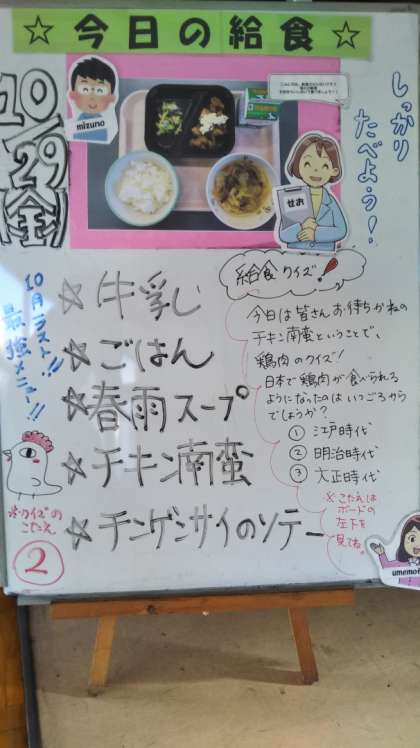 ☆今日の給食☆
10/29(金)
mizuno
せお
しっかり
たべよう!
10月ラスト!!
最強メニュー!!
☆牛乳
☆ごはん
☆春雨スープ
☆チキン南蛮
☆チンゲンサイのソテー
給食クイズ!
今日は皆さんお待ちかねの
チキン南蛮ということで、
鶏肉のクイズ!
日本で鶏肉が食べられる
ようになったのはいつごろから
でしょうか?
① 江戸時代
② 明治時代
③ 大正時代
※こたえは
ボードの
左下を
見てね。
※クイズの
こたえ
②
umemo